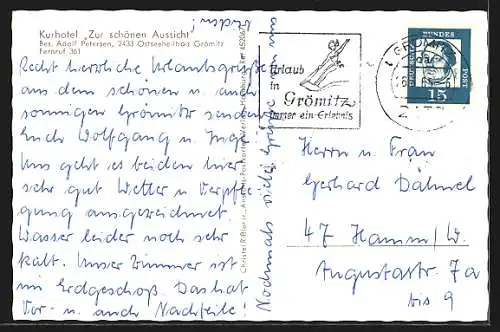 Kurhotel "Zur schönen Aussicht"
Bes. Adolf Petersen, 2433 Ostseeheilbad Grömitz
Fernruf 361
Recht herzliche Urlaubsgrüße
aus dem schönen u. auch
sonnigen Grömitz senden
Euch Wolfgang u. Inge.
Uns geht es beiden hier
sehr gut Wetter u. Verpfle
gung ausgezeichnet.
Wasser leider noch sehr
kalt. Unser Zimmer ist
im Erdgeschoß. Das hat
Vor- u. auch Nachteile!
Nochmals viele Grüße von uns
Urlaub
in
Grömitz
immer ein Erlebnis
GRÖMITZ
DEUTSCHE BUNDESPOST
15
Herrn u. Frau
Gerhard Dähmel
47 Hamm/W.
Augustastr. 7a
bis 9